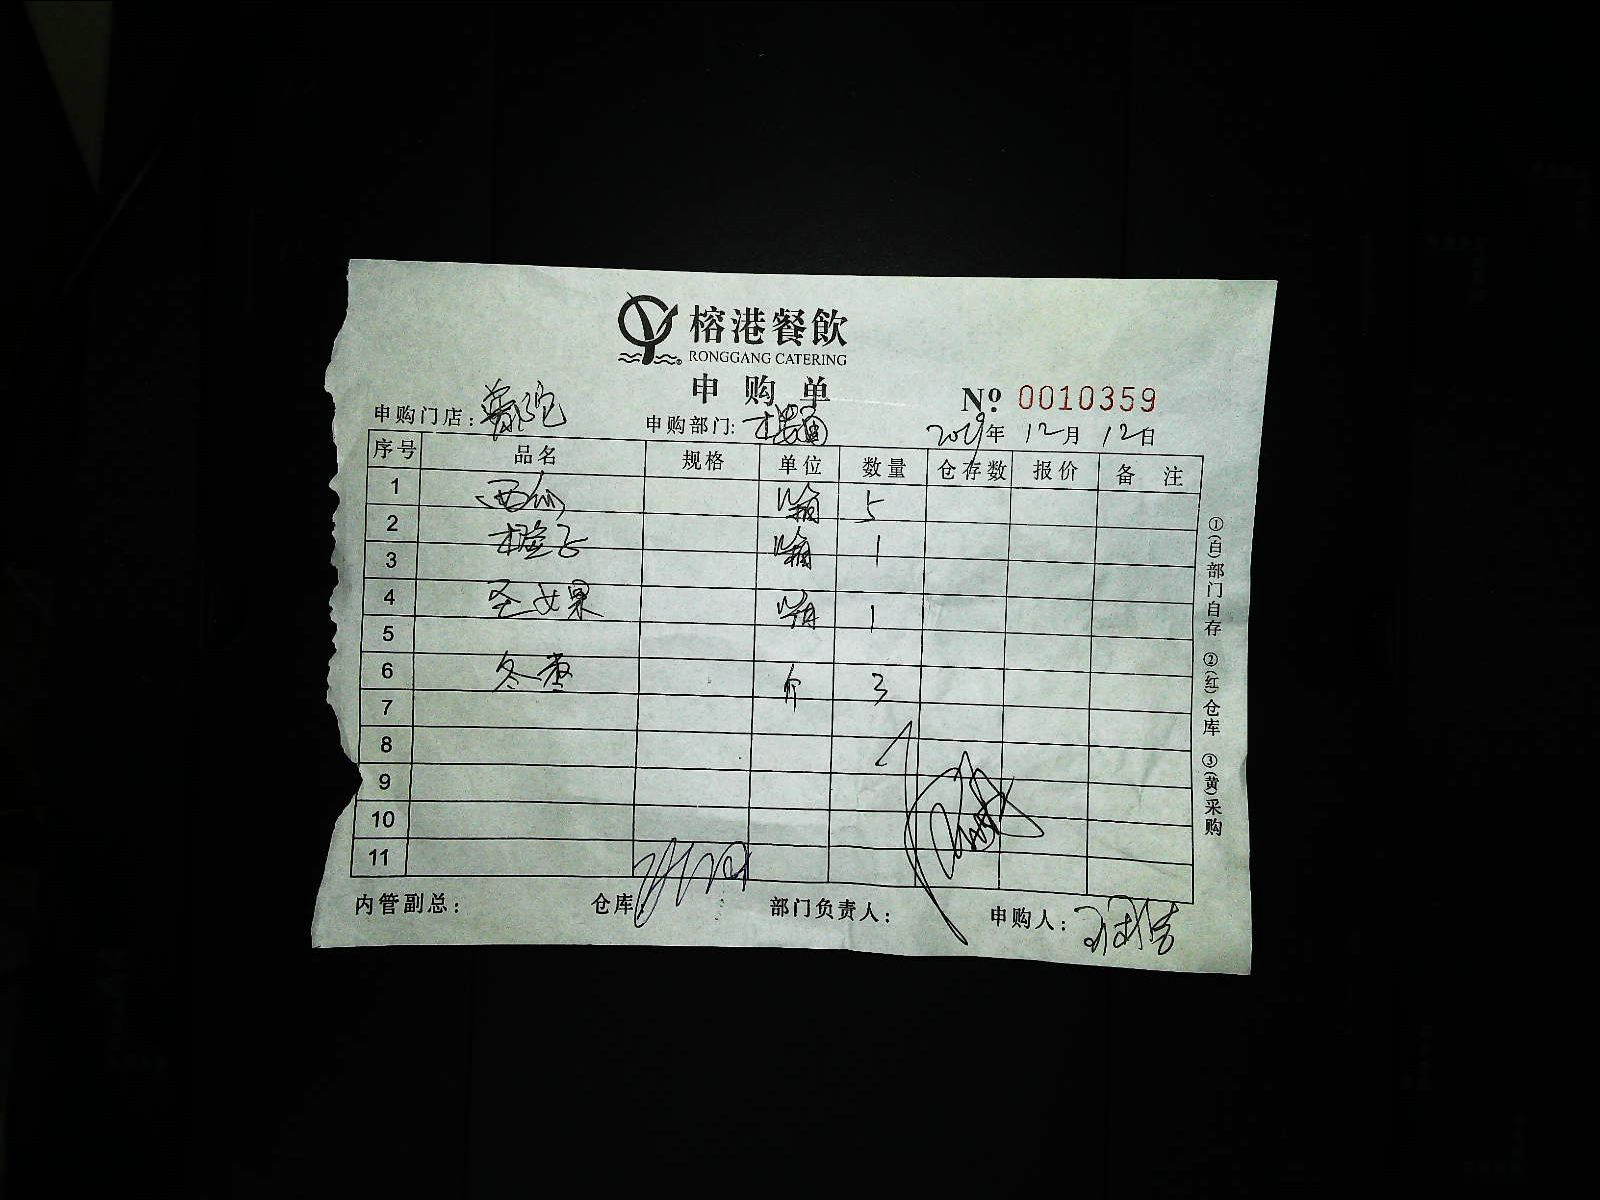 榕港餐飲
RONGGANG CATERING
申购单
№ 0010359
申购门店: 申购部门: 楼面 2019年 12月 12日
序号 品名 规格 单位 数量 仓存数 报价 备注
1 西瓜 箱 5
2 橙子 箱 1
3
4 圣女果 箱 1
5
6 冬枣 斤 3
7
8
9
10
11
内管副总: 仓库: 部门负责人: 申购人:
①(白)部门自存 ②(红)仓库 ③(黄)采购